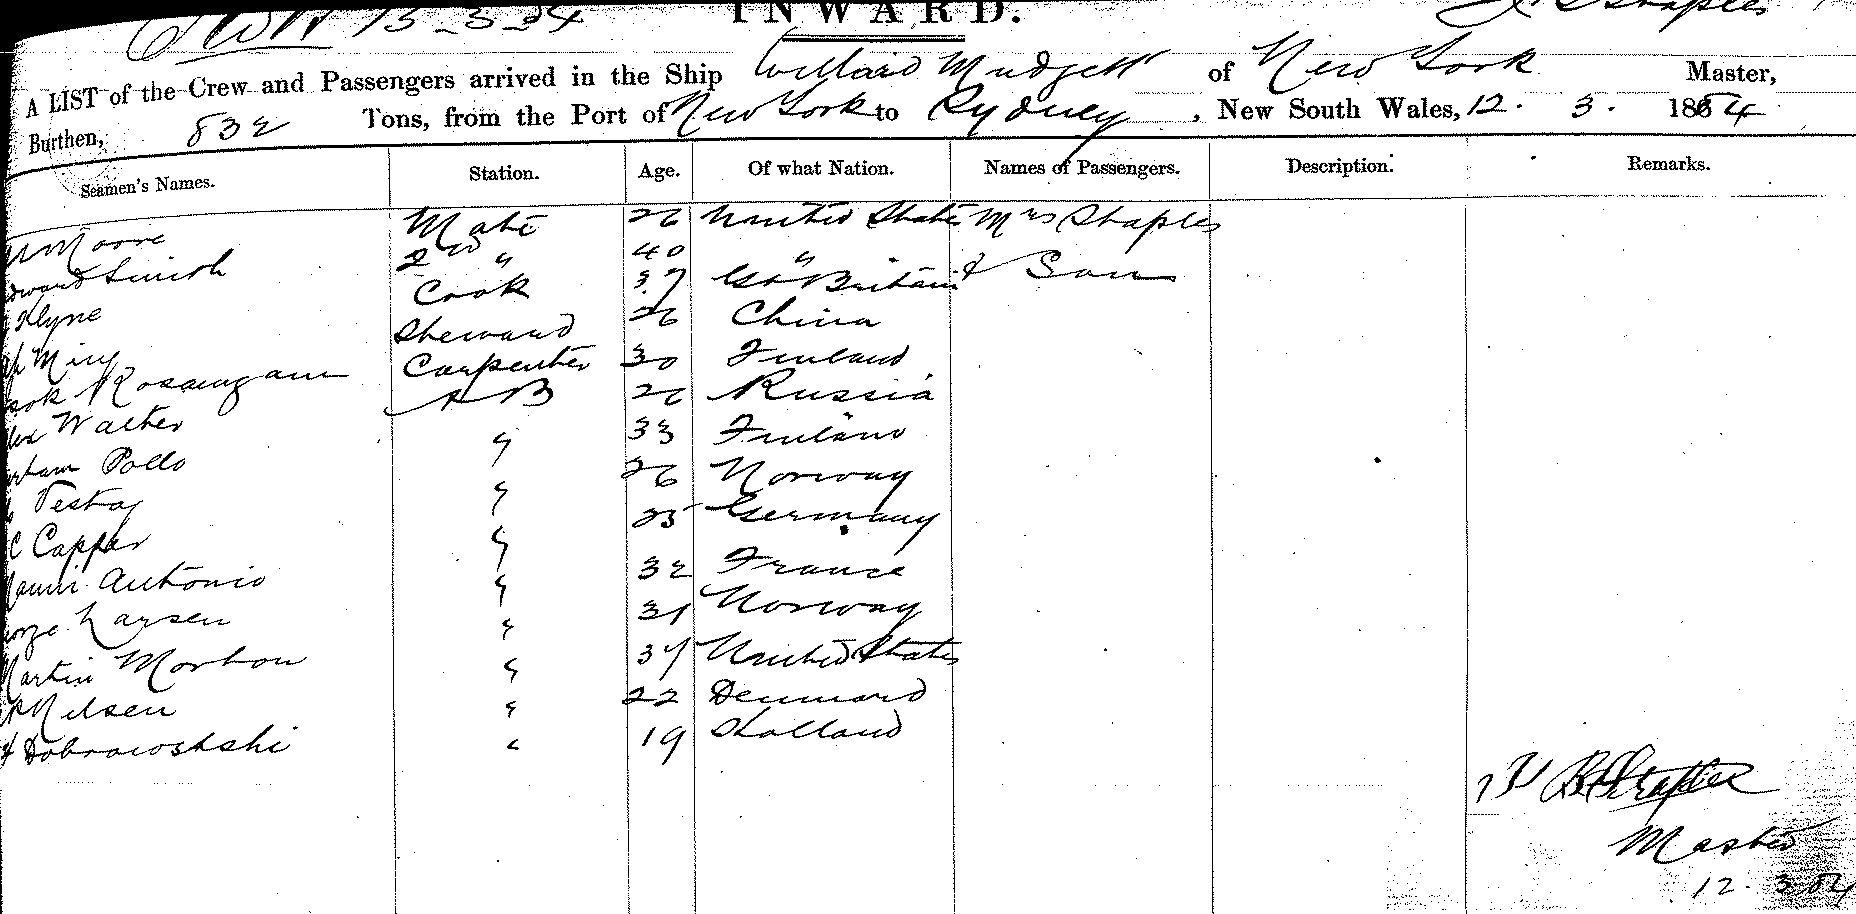 13-3-84 INWARD. Staples
A LIST of the Crew and Passengers arrived in the Ship Willard Mudgett of New York Master,
Burthen, 832 Tons, from the Port of New York to Sydney, New South Wales, 12. 3. 1884
Seamen's Names. Station. Age. Of what Nation. Names of Passengers. Description. Remarks.
Moore Mate 26 United States Mrs Staples
Edward Smith 2nd " 40 " & Son
Klyne Cook 37 Gt Britain
Ah Ming Steward 26 China
Carpenter 30 Finland
Alex Walter A B 26 Russia
Pollo " 33 Finland
Testag " 26 Norway
C Capper " 25 Germany
Antonio " 32 France
George Larsen " 31 Norway
Martin Morbou " 37 United States
Nilsen " 22 Denmark
Dobrowolski " 19 Holland
W B Staples
Master
12. 3.84